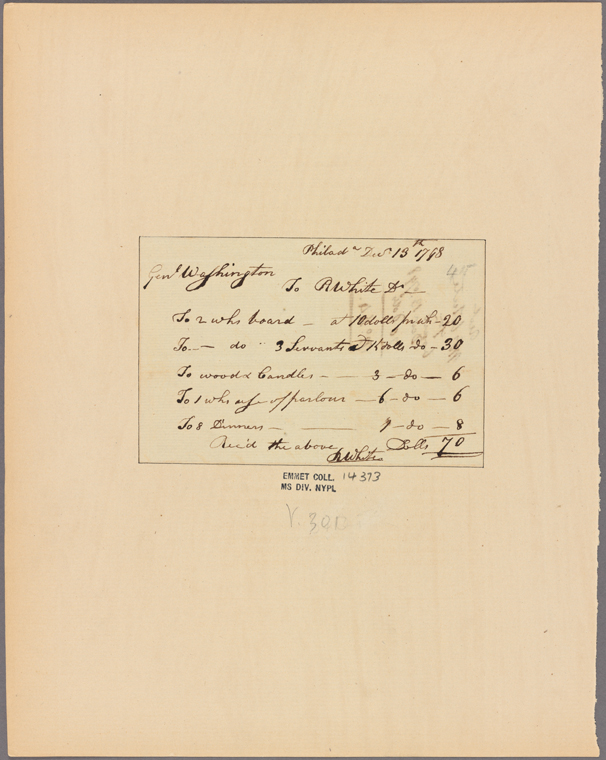 Philad.ª Decr 13th 1798
45
Genl Washington
To RWhite Dr —
To 2 whs board — at 10 dolls pr wh — 20
To — do " 3 Servants at dolls do — 30
To wood & Candles — 3 — do — 6
To 1 whs use of parlour — 6 — do — 6
To 8 Dinners — do — 8
Rec'd the above Dolls 70
RWhite
EMMET COLL. 14393
MS DIV. NYPL